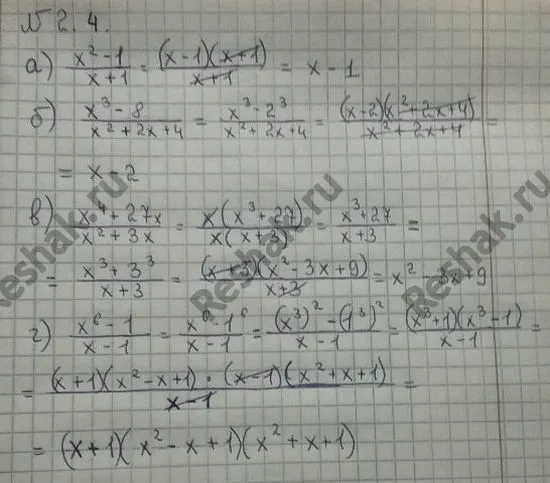 № 2.4.
а) (x² - 1)/(x + 1) = ((x - 1)(x + 1))/(x + 1) = x - 1
б) (x³ - 8)/(x² + 2x + 4) = (x³ - 2³)/(x² + 2x + 4) = ((x - 2)(x² + 2x + 4))/(x² + 2x + 4) =
= x - 2
в) (x⁴ + 27x)/(x² + 3x) = (x(x³ + 27))/(x(x + 3)) = (x³ + 27)/(x + 3) =
= (x³ + 3³)/(x + 3) = ((x + 3)(x² - 3x + 9))/(x + 3) = x² - 3x + 9
г) (x⁶ - 1)/(x - 1) = (x⁶ - 1⁶)/(x - 1) = ((x³)² - (1³)²)/(x - 1) = ((x³ + 1)(x³ - 1))/(x - 1) =
= ((x + 1)(x² - x + 1) · (x - 1)(x² + x + 1))/(x - 1) =
= (x + 1)(x² - x + 1)(x² + x + 1)
Reshak.ru
Reshak.ru
Reshak.ru